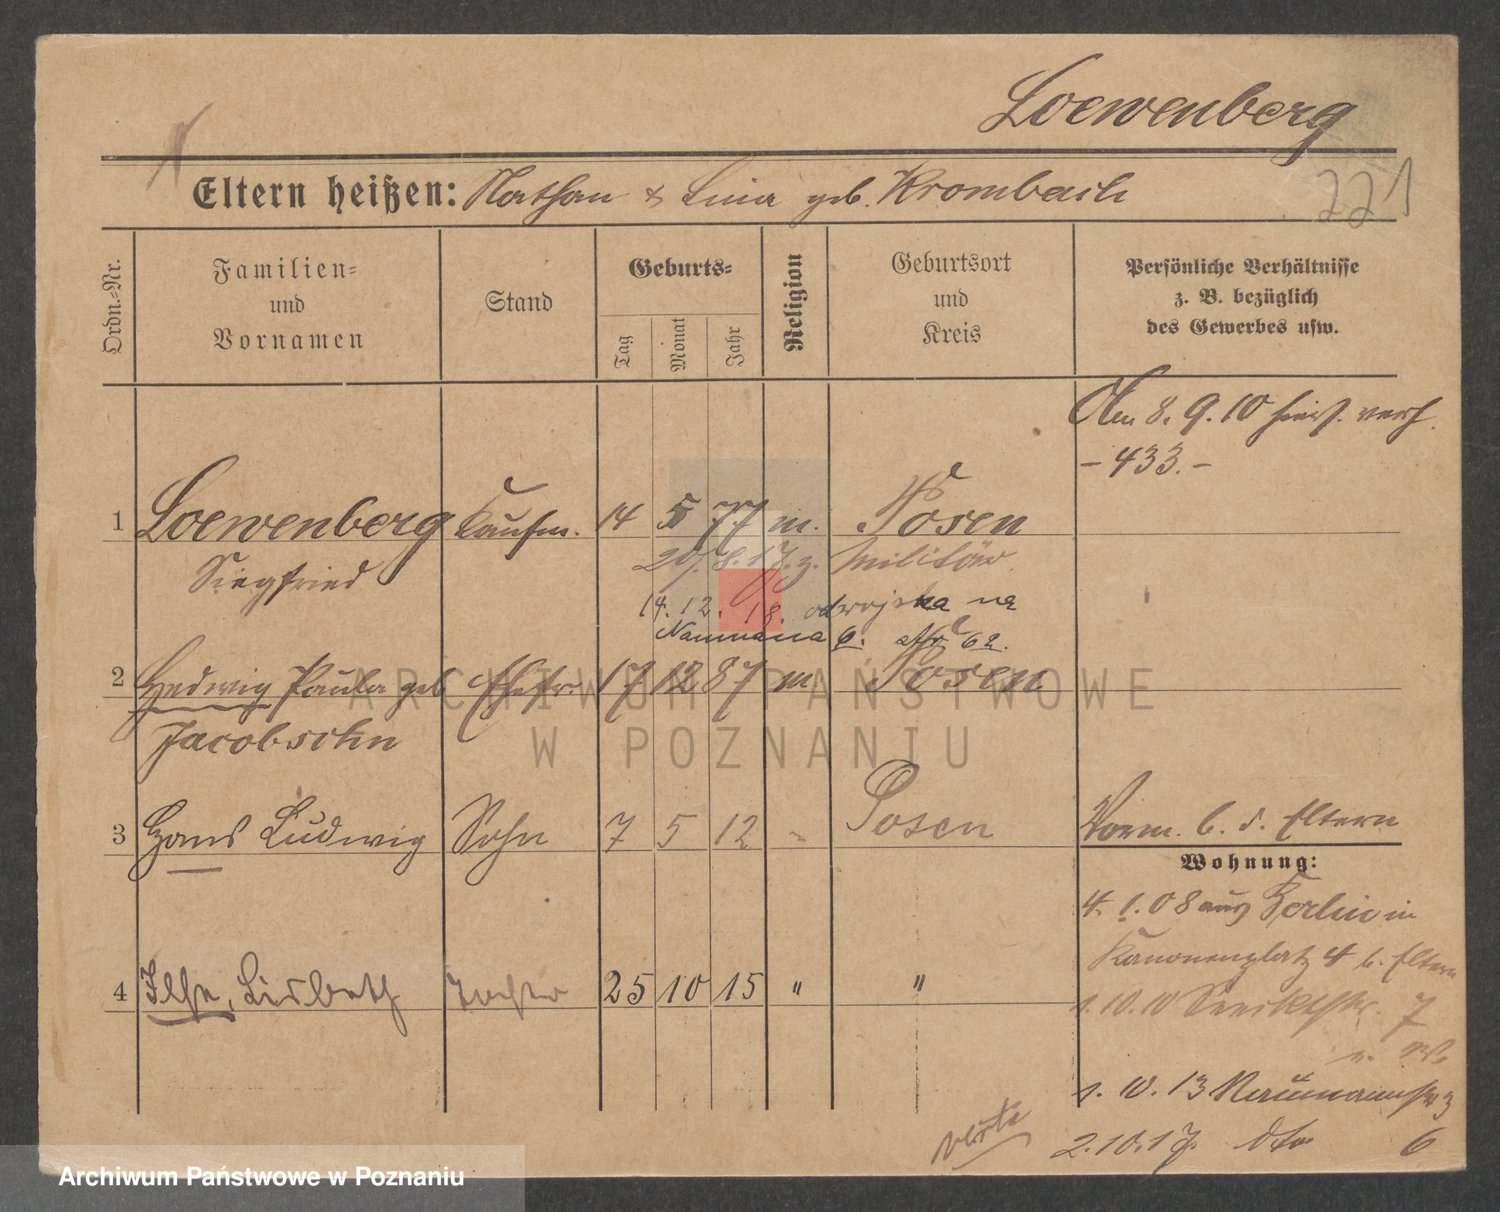 Loewenberg
221
Eltern heißen: Nathan & Lina geb. Krombach
Ordn.=Nr.
Familien=
und
Vornamen
Stand
Geburts=
Tag
Monat
Jahr
Religion
Geburtsort
und
Kreis
Persönliche Verhältnisse
z. B. bezüglich
des Gewerbes usw.
8. 9. 10 verh.
- 433. -
1 Loewenberg Kaufm. 14 5 77 m. Posen
Siegfried
8. 17. z. Militär
14. 12. 18. na
Naumana 6. Nr 62.
2 Hedwig Paula geb Ehefr. 17 12 87 m Posen
Jacobsohn
3 Hans Ludwig Sohn 7 5 12 Posen
Vorm. b. d. Eltern
Wohnung:
4. 1. 08 aus Berlin in
Kanonenplatz 4 b. Eltern
4 Ilse, Lisbeth Tochter 25 10 15 " "
1. 10. 10 7
1. 10. 13 Naumannstr 3
verte
2. 10. 17. dto 6
ARCHIWUM PAŃSTWOWE
W POZNANIU
Archiwum Państwowe w Poznaniu